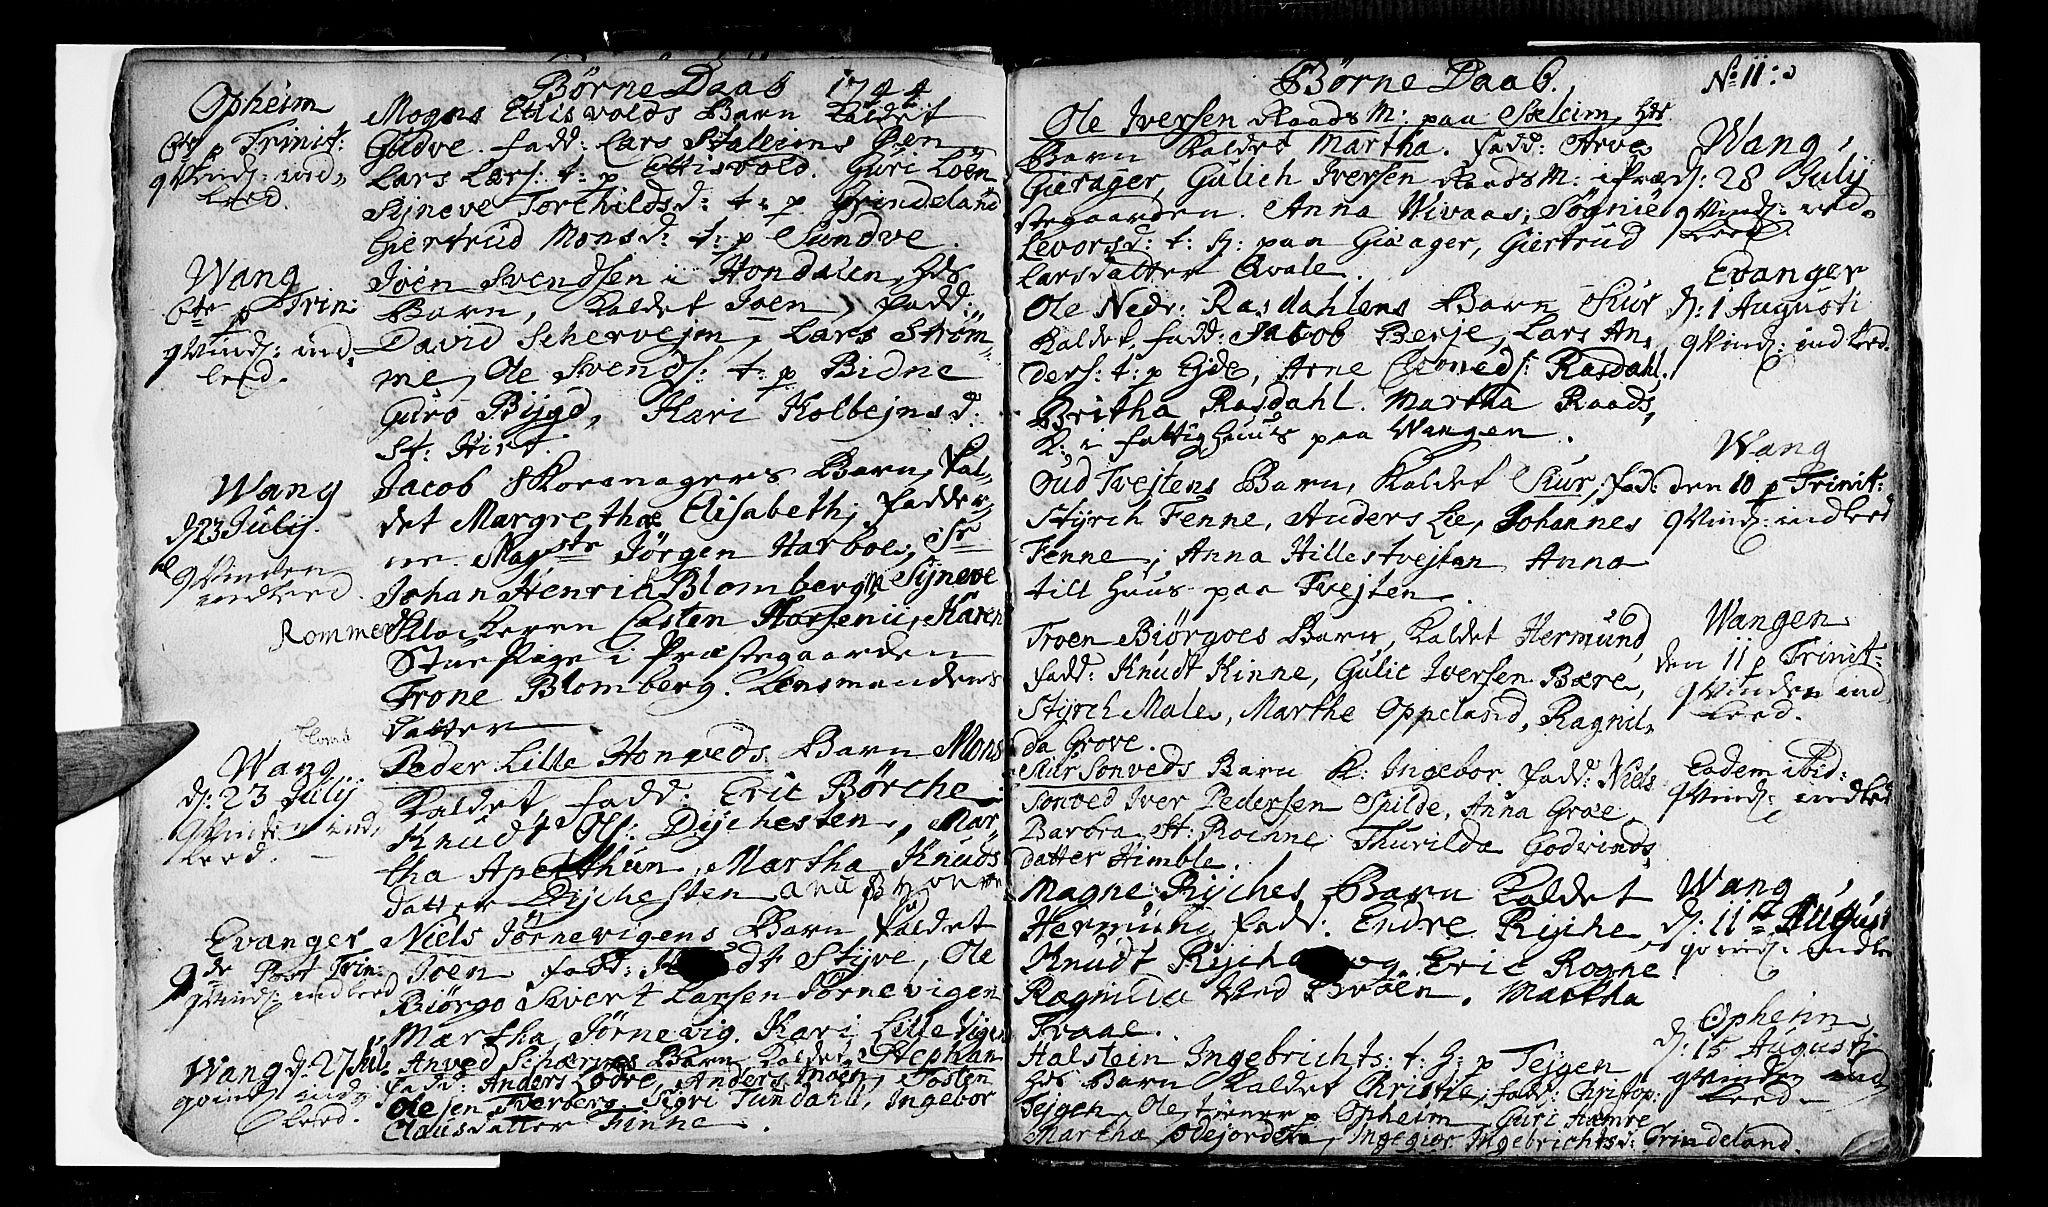 Børne Daab 1744
Opheim
6te p Trinit:
qvind: ind,
leed.
Mogns Ettisvolds Barn Kaldet
Gudve. fadd: Lars Stalleims Oen
Lars Lars: t: p Ettisvold. Guri Løen
Sijneve Torchildsd: t: p Grindeland
Giertrud Monsd: t: p Sundve.
Wang
6te p Trin:
qvind: ind,
leed.
Joen Svendsen i Hondalen, hds
Barn, Kaldet Joen, fadd:
David Schervejm, Lars Strøm,
me, Ole Svends: t: p Bidne
Guro Bijgd, Kari Kolbejnsd:
St: Hirt.
Wang
d: 23 Julij.
qvinden
indleed.
Jacob Skoemagers Barn, kal,
det Margrethæ Elisabeth, fadder,
ne. Mag ste Jørgen Harboe, Sr
Johan Henrich Blomberg, Sijneve
Rommer
Klockeren Casten Horsenii, Karen
Stue Pige i Præstegaarden
Trone Blomberg. Lensmandens
datter
Wang
d: 23 Julij
qvinden ind,
leed.
Peder Lille Honveds Barn Mons
Kaldet fadd: Eric Børche
Knudt Ols: Dijchesten, Mar,
tha Apelthun, Martha Knuds
datter Dijchesten
Evanger
9de Post Trin:
qvind: indleed
Niels Jørnevigens Barn kaldet
Joen fadd: Stijve, Ole
Biørgo Sivert Larsen Jørnevigen
Martha Jørnevig. Kari Lille Vigen
Wang d: 27 Jul.
qvind ind,
leed.
Anved Schærpes Barn kaldet Stephan
fadd: Anders Lødve, Anders Moen, Tosten
Olesen Tverberg, Sigri Tundahl, Ingebor
Clausdatter Finne.
Børne Daab.
No 11:
Ole Iversen Raads M: paa Staleim, hds
Barn Kaldet Martha. fadd: Arve
Gierager, Gulich Iversen Raads M: i Præ,
stegaarden. Anna Wivaas, Søgnie
Levorsd: t: h: paa Gieager, Giertrud
Larsdatter Qvale.
Wang
d: 28 Julij
qvind: ind,
leed.
Ole Nedr: Rasdahlens Barn Siur
Kaldet, fadd: Jacob Berje, Lars An,
ders: t: p Ejde, Arne Rasdahl.
Britha Rasdahl. Martha Raads,
K: i fattighuus paa Wangen.
Evanger
d: 1 Augusti
qvind: indleed.
Oud Tvejtens Barn, Kaldet Siur, fad:
Stÿrch Fenne, Anders Lie, Johannes
Fenne, Anna Hillestvejten Anna
till huus paa Tvejten.
Wang
den 10 p Trinit:
qvind: indleed
Troen Biørgoes Barn, Kaldet Hermund,
fadd: Knudt Hinne, Gulic Iversen Bære,
Stÿrch Male, Marthe Oppeland, Ragnil,
da Grove.
Wangen
den 11 p Trinit:
qvinden ind
leed.
Siur Sonveds Barn K: Ingebor fadd: Niels
Sonved Iver Pedersen Spilde, Anna Groe,
Barbra St: Roehne Thurilda Godvinds,
datter Himble.
Eodem ibid:
qvind: indleed
Magne Rijches Barn Kaldet
Hermund fadd: Endre Rijche
Knudt Rijche og Eric Rogne
Ragnilda Ved Brøen. Martha
Traae.
Wang
d: 11te August
qvind: indle
Halstein Ingebrichts: t: h: p Tejgen
hds Barn Kaldet Christie, fadd: Christop:
Tejgen, Ole tiener p Opheim, Guri Hæmre
Martha Ødejordet, Ingegior Ingebrichtsd: Grindeland.
Opheim
d: 15 Augusti
qvinden ind
leed